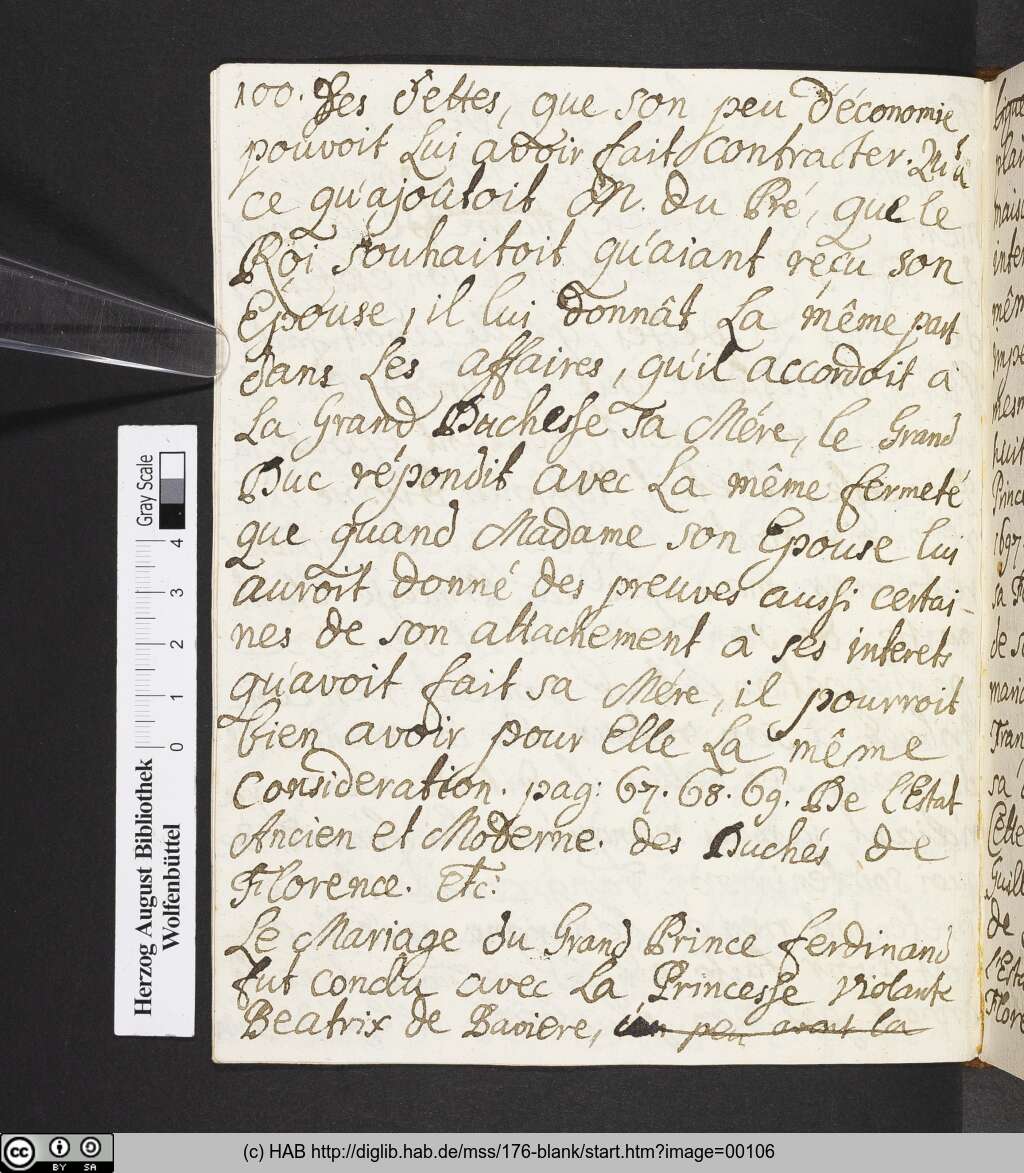 100. des dettes, que son peu d'économie
pouvoit Lui avoir fait contracter. Qu'à
ce qu'ajoûtoit M. du Pré, que le
Roi souhaitoit qu'aiant reçu son
Epouse, il lui donnât La même part
dans Les affaires, qu'il accordoit a
La Grand Duchesse sa Mére, le Grand
Duc répondit avec La même fermeté
que quand Madame son Epouse lui
auroit donné des preuves aussi certai-
nes de son attachement à ses interets
qu'avoit fait sa Mére, il pourroit
bien avoir pour Elle La même
Consideration. pag: 67. 68. 69. De l'Estat
Ancien et Moderne. des Duchés de
Florence. Etc:
Le Mariage du Grand Prince Ferdinand
fut conclu avec La Princesse Violante
Beatrix de Baviere, un peu avant la
Herzog August Bibliothek
Wolfenbüttel
Gray Scale
0 1 2 3 4
(c) HAB http://diglib.hab.de/mss/176-blank/start.htm?image=00106
cc BY SA